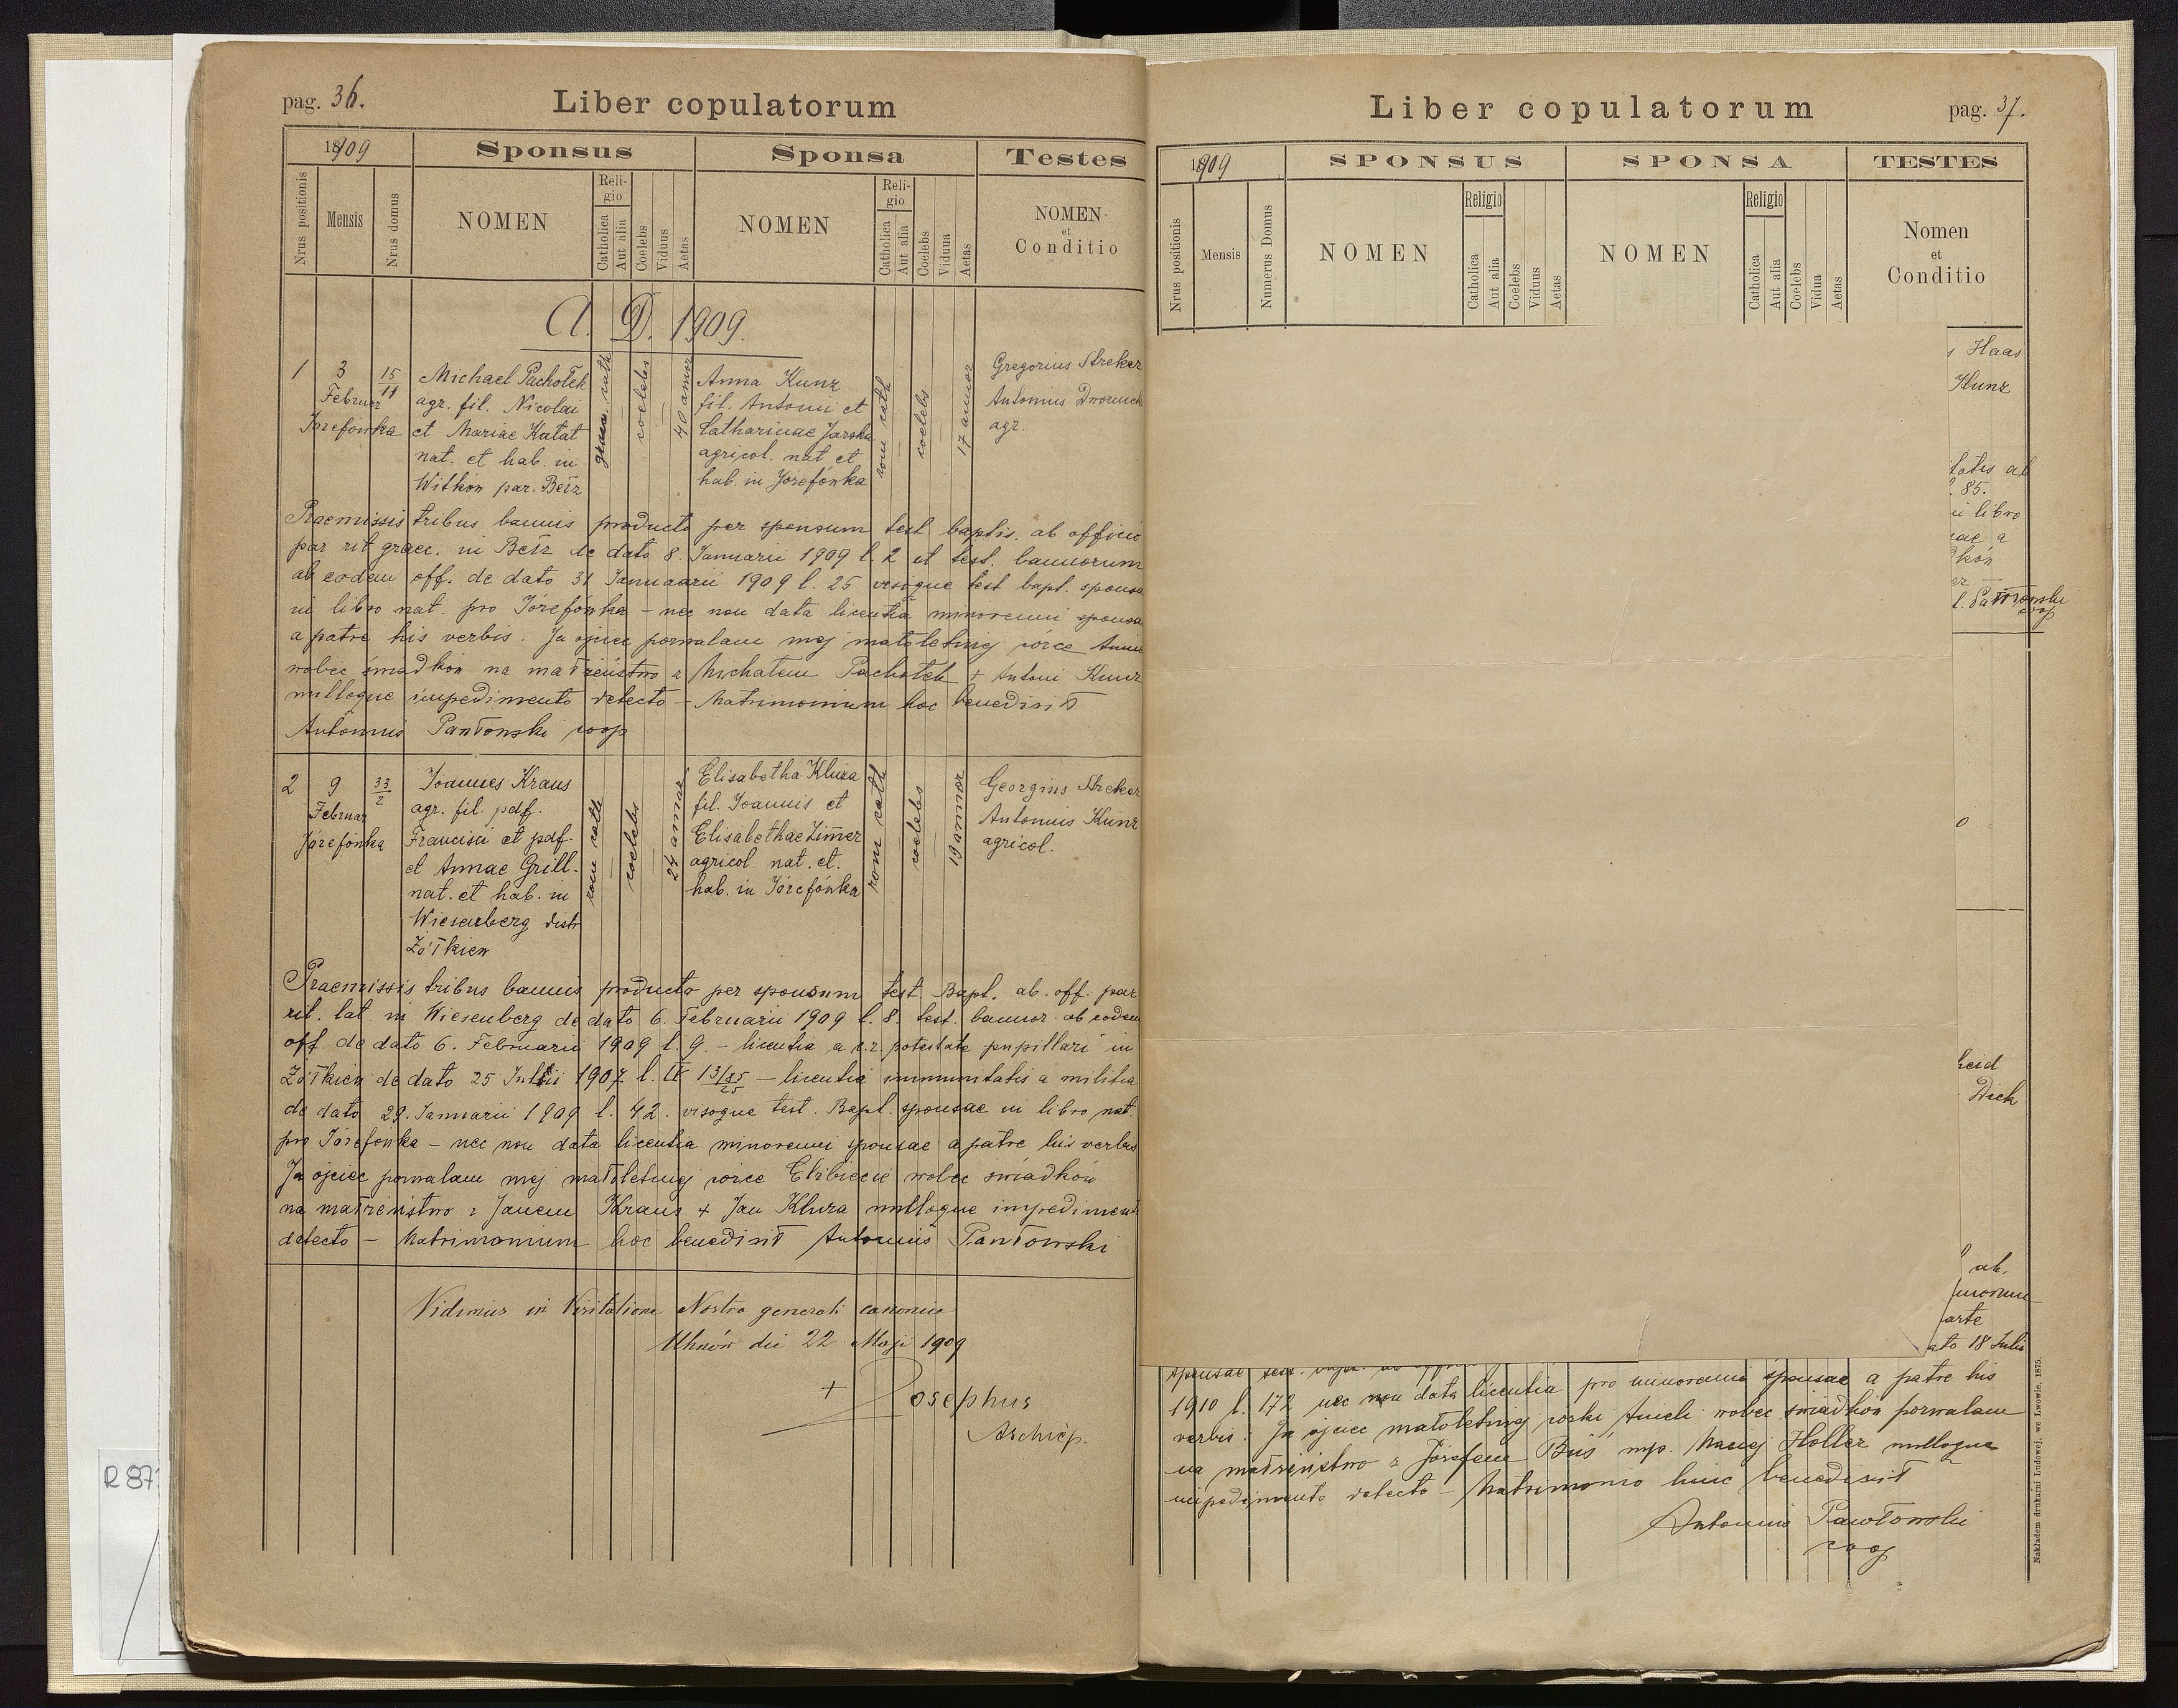 pag. 36.
Liber copulatorum
1909
Sponsus
Sponsa
Testes
Nrus positionis
Mensis
Nrus domus
NOMEN
Religio
Catholica
Aut alia
Coelebs
Viduus
Aetas
NOMEN
Religio
Catholica
Aut alia
Coelebs
Vidua
Aetas
NOMEN
et
Conditio
A. D. 1909.
1
3
Februar
Józefówka
15
11
Michael Pachołek
agr. fil. Nicolai
et Mariae Kałat
nat. et hab. in
Witków par. Bełz
graec. cath
coelebs
40 annor
Anna Kunz
fil. Antonii et
Catharinae Jarska
agricol. nat et
hab. in Józefówka
rom cath
coelebs
17 annor
Gregorius Streker
Antonius Dwornik
agr.
Praemissis tribus bannis producto per sponsum test baptis. ab officio
par rit graec. in Bełz de dato 8. Januarii 1909 l. 2 et test. bannorum
ab eodem off. de dato 31 Januaarii 1909 l. 25 visoque test bapt. sponsa
in libro nat. pro Józefówka – nec non data licentia minorenni sponsa
a patre his verbis. Ja ojciec pozwalam mej małoletniej córce Annie
wobec świadków na małżeństwo z Michałem Pachołek + Antoni Kunz
nulloque impedimento detecto – Matrimonium hoc benedixit
Antonius Pawłowski coop
2
9
Februar
Józefówka
33
2
Joannes Kraus
agr. fil. pdf.
Francisci et pdf.
et Annae Grill.
nat. et hab. in
Wiesenberg distr
Żółkiew
rom cath
coelebs
24 annor
Elisabetha Kluza
fil. Joannis et
Elisabethae Zimer
agricol. nat. et.
hab. in Józefówka
rom cath
coelebs
19 annor
Georgius Streker
Antonius Kunz
agricol.
Praemissis tribus bannis producto per sponsum test. Bapt. ab. off. par
rit. lat. in Wiesenberg de dato 6. Februarii 1909 l. 8. test. bannor. ab eodem
off. de dato 6. Februarii 1909 l. 9. – licentia a c.r. potestate pupillari in
Żółkiew de dato 25 Julii 1907 l. IV 13/85 – licentia immunitatis a militia
25
de dato 29. Januarii 1909 l. 42. visoque test. Bapt. sponsae in libro nat.
pro Józefówka – nec non data licentia minorenni sponsae a patre his verbis
Ja ojciec pozwalam mej małoletniej córce Elżbiecie wobec świadków
na małżeństwo z Janem Kraus + Jan Kluza nulloque impediment
detecto – Matrimonium hoc benedixit Antonius Pawłowski
Vidimus in Visitatione Nostra generali canonica
Uhnów die 22 Maji 1909
+ Josephus
Archiep.
R 87
Liber copulatorum
pag. 37.
1909
SPONSUS
SPONSA
TESTES
Nrus positionis
Mensis
Numerus Domus
NOMEN
Religio
Catholica
Aut alia
Coelebs
Viduus
Aetas
NOMEN
Religio
Catholica
Aut alia
Coelebs
Vidua
Aetas
Nomen
et
Conditio
Haas
Kunz
tatis ab
85.
libro
Dich
ab.
arte
ato 18 Julii
1910 l. 172 nec non data licentia pro minorenni sponsae a patre his
verbis: Ja ojciec małoletniej córki Anieli wobec świadków pozwalam
na małżeństwo z Józefem Buś mp. Maciej Holler nulloque
impedimento detecto – Matrimonio huic benedixit
Antonius Pawłowski
coop
Nakładem drukarni Ludowej, we Lwowie, 1875.